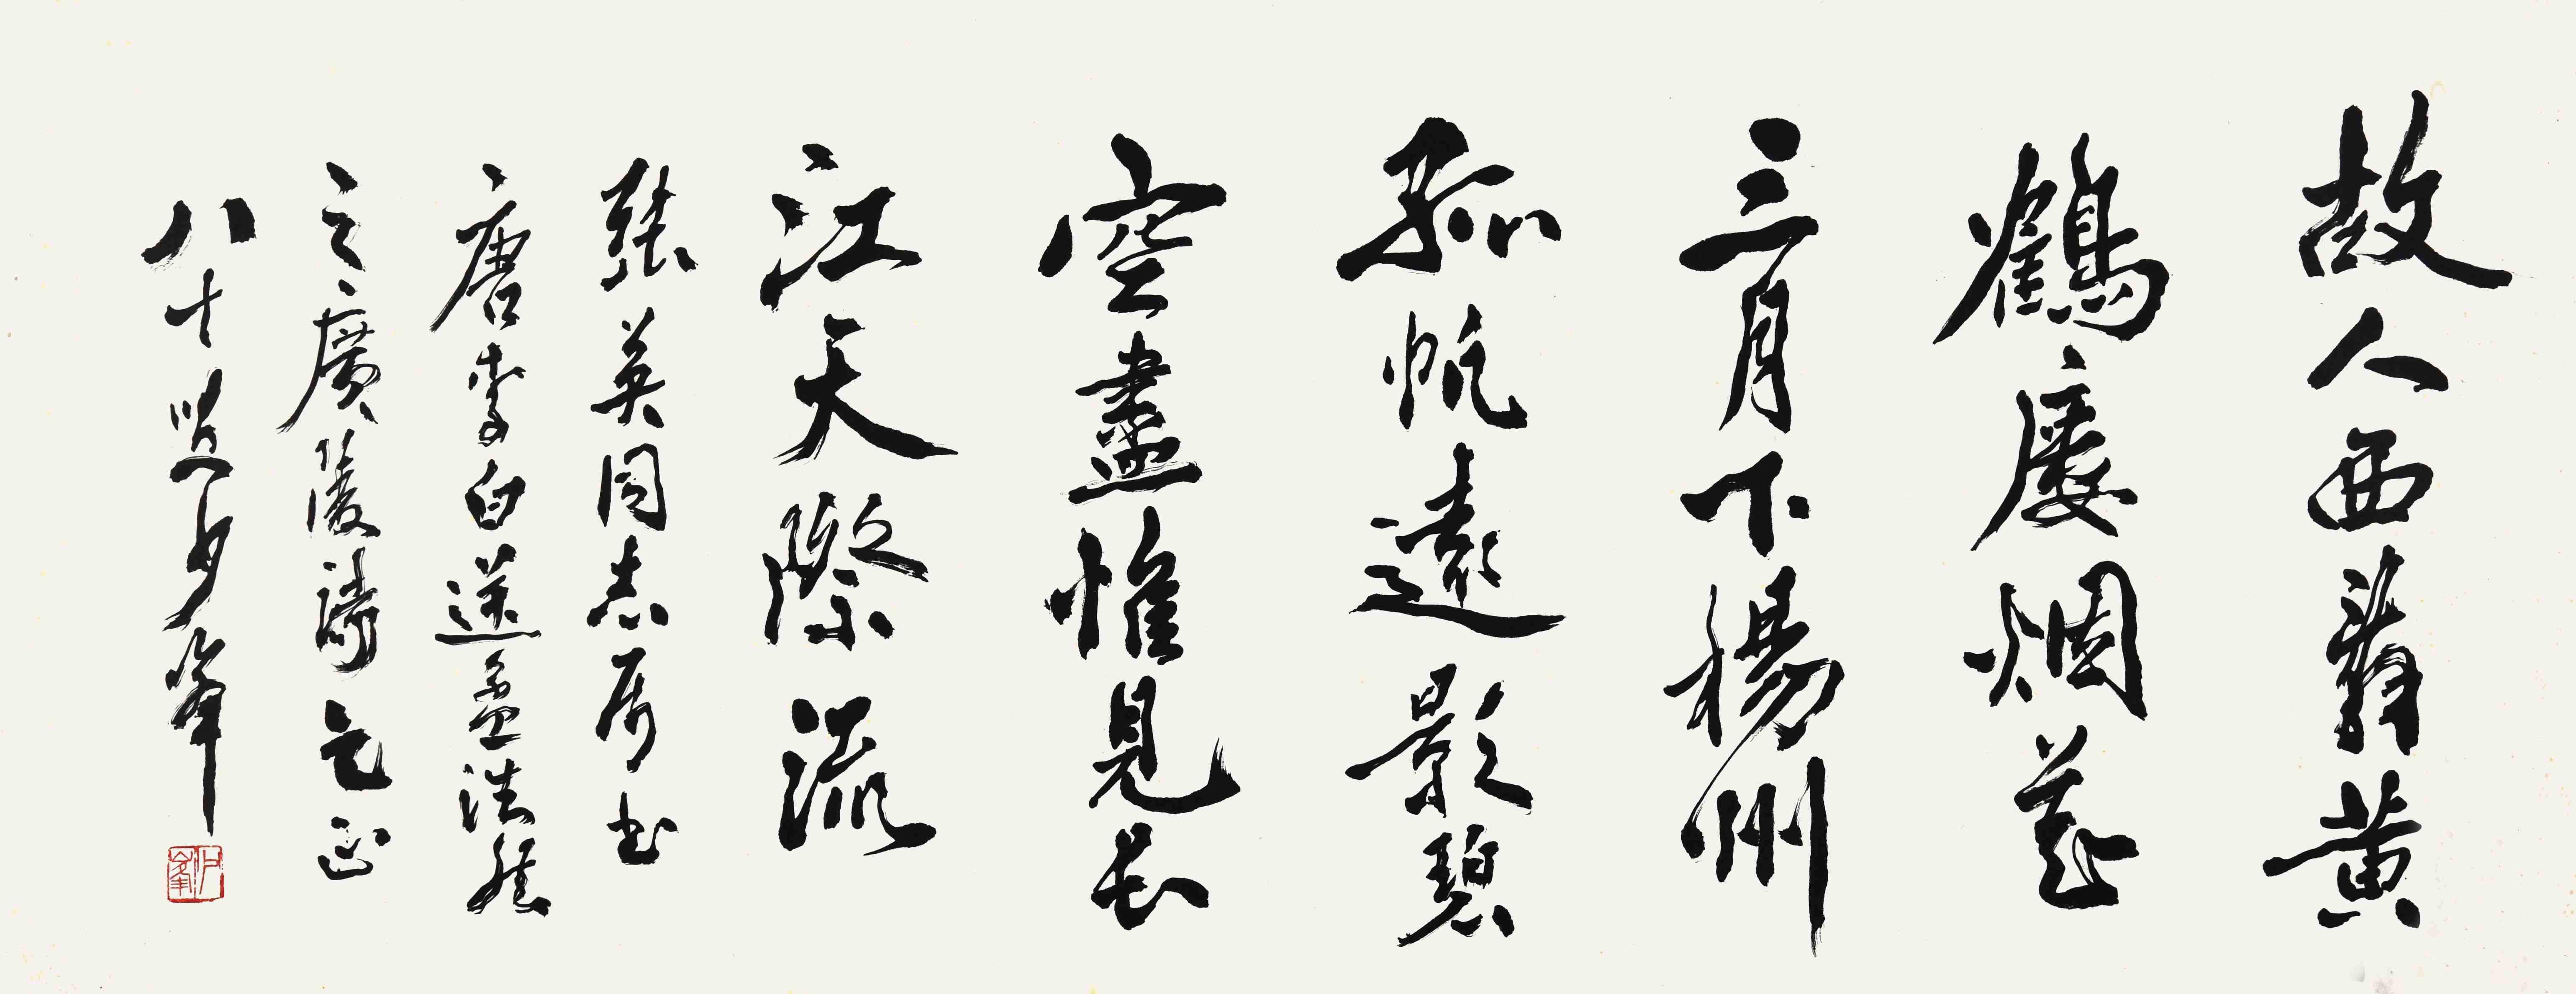 故人西辭黃
鶴廔烟花
三月下揚州
孤帆遠影碧
空盡惟見長
江天際流
張英同志属书
唐李白送孟浩然
之廣陵詩乞正
八十叟峯